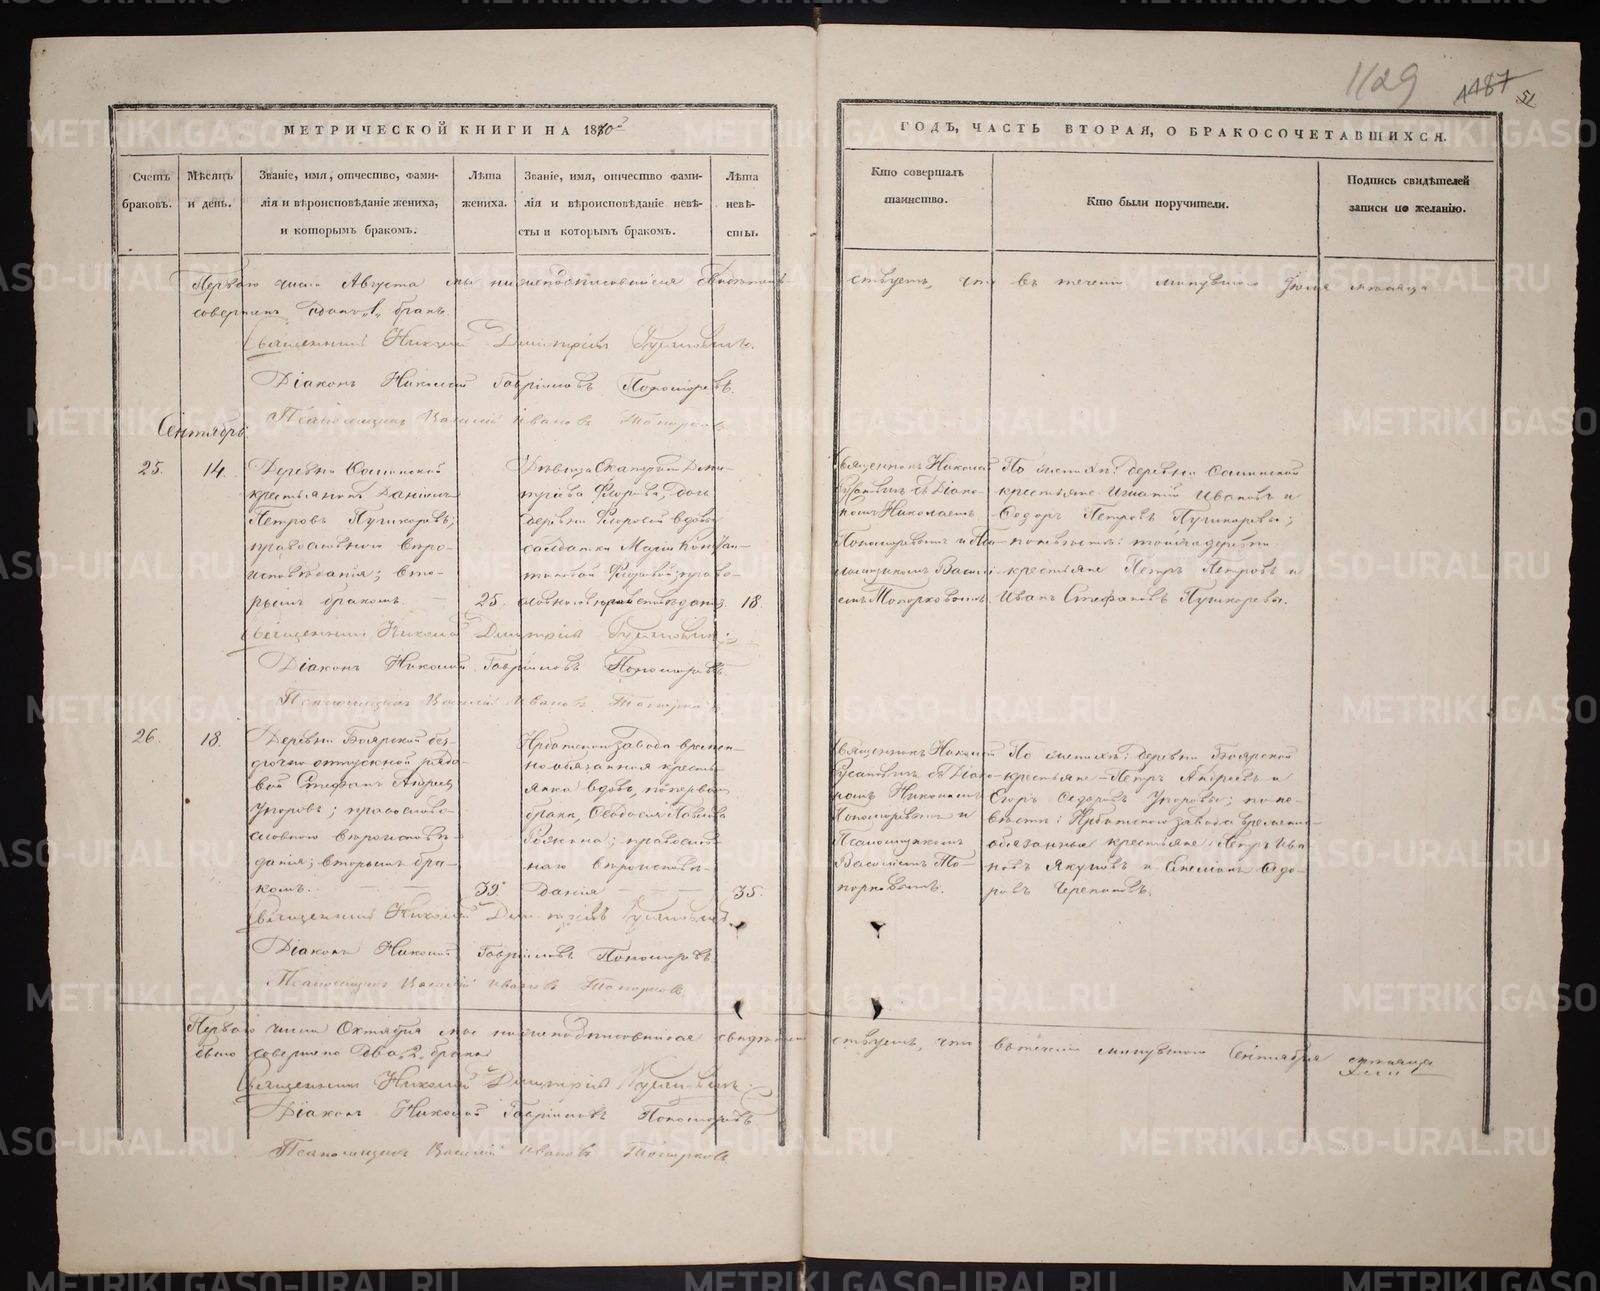 1129
1487
51
МЕТРИЧЕСКОЙ КНИГИ НА 1870й
ГОДЪ, ЧАСТЬ ВТОРАЯ, О БРАКОСОЧЕТАВШИХСЯ.
Счетъ браковъ.
Мѣсяцъ и день.
Званіе, имя, отчество, фами-
лія и вѣроисповѣданіе жениха,
и которымъ бракомъ.
Лѣта жениха.
Званіе, имя, отчество фами-
лія и вѣроисповѣданіе невѣ-
сты и которымъ бракомъ.
Лѣта невѣ-
сты.
Кто совершалъ
таинство.
Кто были поручители.
Подпись свидѣтелей
записи по желанію.
Перваго числа Августа мы нижеподписавшіися свидѣтель-
ствуемъ, что въ теченіи минувшаго Іюля мѣсяца
совершенъ Одинъ „1„ бракъ.
Священникъ Николай Димитріевъ
Діаконъ Николай Гавріиловъ Пономаревъ.
Псаломщикъ Василій Ивановъ Топорковъ
Сентябрь
25.
14.
Деревни
крестьянинъ Даніилъ
Петровъ Пушкаревъ;
православнаго вѣро-
исповѣданія; вто-
рымъ бракомъ. —
25.
Дѣвица
тріева Флорова, Дочь
деревни Флоровой вдовы
солдатки Маріи
Флоровой; право-
славнаго вѣроисповѣданія.
18.
Священникъ Николай
съ Діако-
номъ Николаемъ
Пономаревымъ и Пса-
ломщикомъ Василі-
емъ Топорковымъ.
По женихѣ: деревни
крестьяне Игнатій Ивановъ и
Ѳедоръ Петровъ Пушкаревы;
по невѣстѣ: тойже деревни
крестьяне Петръ Петровъ и
Иванъ Стефановъ Пушкаревы.
Священникъ Николай Димитріевъ
Діаконъ Николай Гавріиловъ Пономаревъ
Псаломщикъ Василій Ивановъ Топорковъ
26.
18.
Деревни Боярской без-
срочно-отпускной рядо-
вой Стефанъ Андреевъ
Упоровъ; православ-
вѣроисповѣ-
данія; вторымъ бра-
комъ. — —
39.
Ирбитскаго завода времен-
нообязанная кресть-
янка вдова, по первомъ
бракѣ, Ѳеодосія
православ-
наго вѣроисповѣ-
данія — —
35.
Священникъ Николай
съ Діако-
номъ Николаемъ
Пономаревымъ и
Псаломщикомъ
Василіемъ То-
порковымъ.
По женихѣ: деревни Боярской
крестьяне Петръ Андреевъ и
Егоръ Ѳедоровъ Упоровы; по не-
вѣстѣ: Ирбитскаго завода временно-
обязанные крестьяне: Петръ Ива-
новъ и Ѳедо-
ровъ Черепановъ.
Священникъ Николай Димитріевъ
Діаконъ Николай Гавріиловъ Пономаревъ
Псаломщикъ Василій Ивановъ Топорковъ
Перваго числа Октября мы нижеподписавшіися свидѣтель-
ствуемъ, что въ теченіи минувшаго Сентября мѣсяца
было совершено Два „2„ брака
Священникъ Николай Димитріевъ
Діаконъ Николай Гавріиловъ Пономаревъ
Псаломщикъ Василій Ивановъ Топорковъ
METRIKI.GASO-URAL.RU